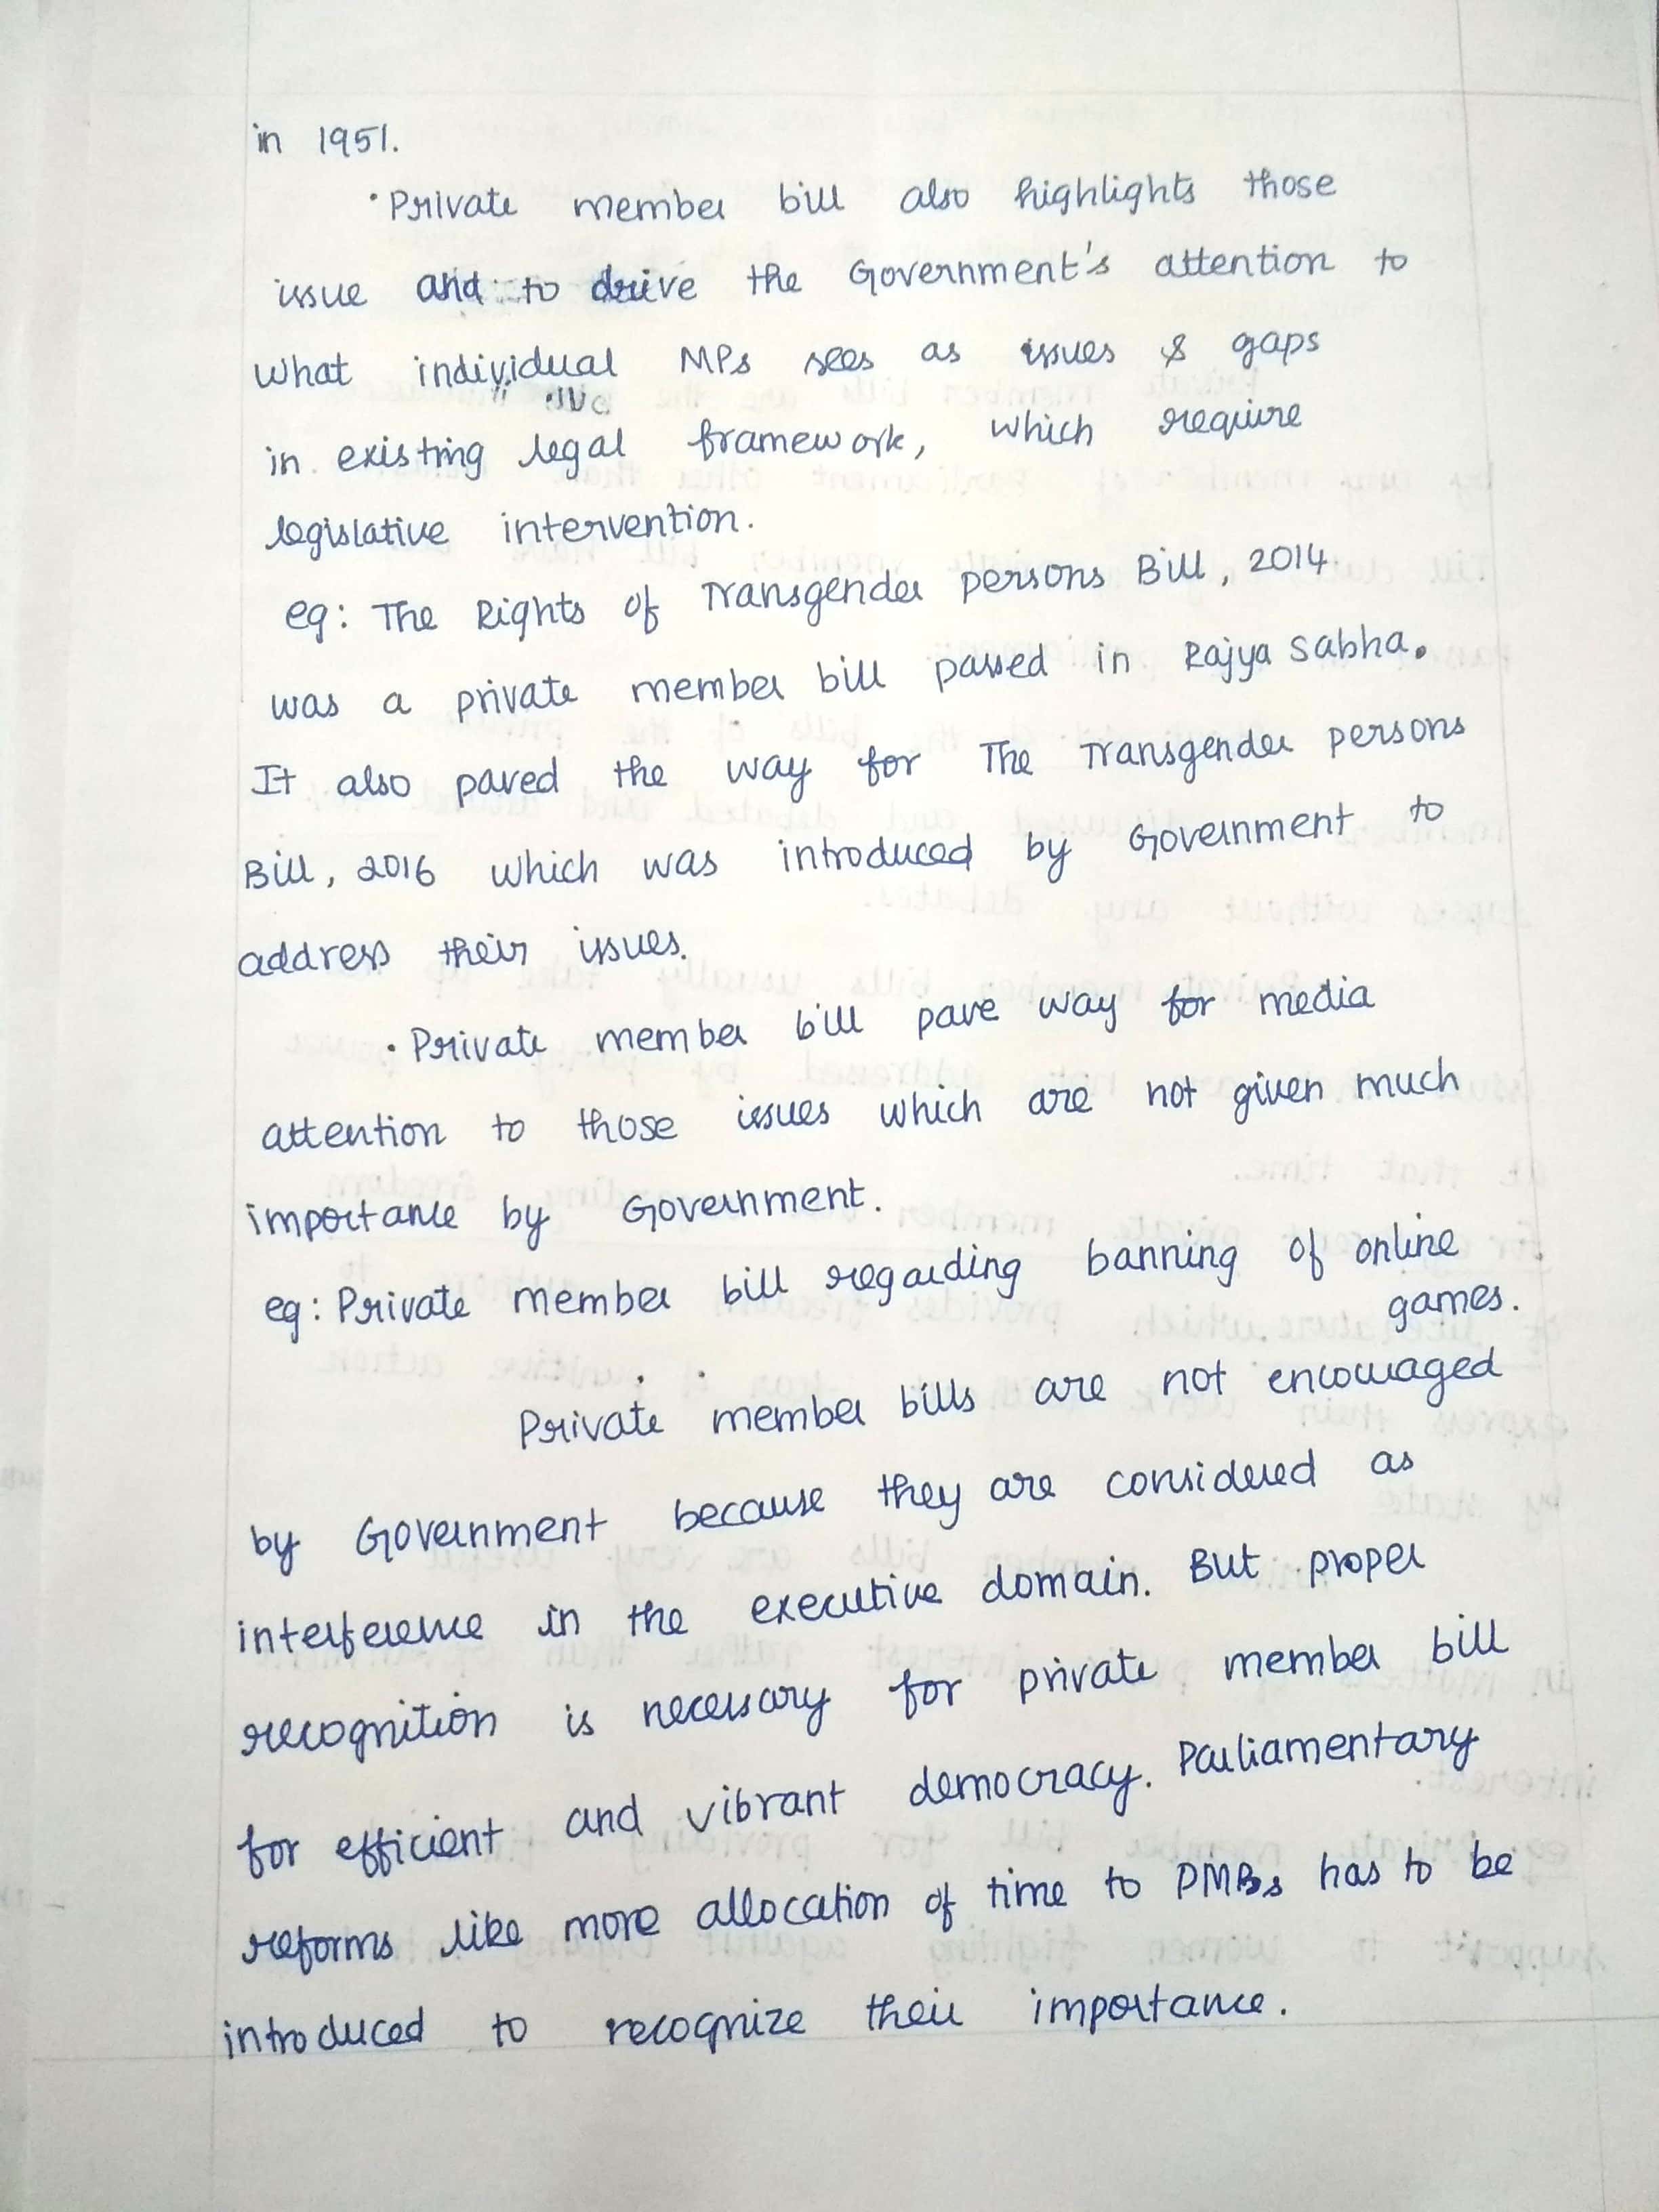 in 1951.
• Private member bill also highlights those
issue and to drive the Government's attention to
what individual MPs sees as issues & gaps
in existing legal framework, which require
legislative intervention.
eg: The Rights of Transgender persons Bill, 2014
was a private member bill passed in Rajya Sabha.
It also paved the way for The Transgender persons
Bill, 2016 which was introduced by Government to
address their issues.
• Private member bill pave way for media
attention to those issues which are not given much
importance by Government.
eg: Private member bill regarding banning of online
games.
Private member bills are not encouraged
by Government because they are considered as
interference in the executive domain. But proper
recognition is necessary for private member bill
for efficient and vibrant democracy. Parliamentary
reforms like more allocation of time to PMBs has to be
introduced to recognize their importance.